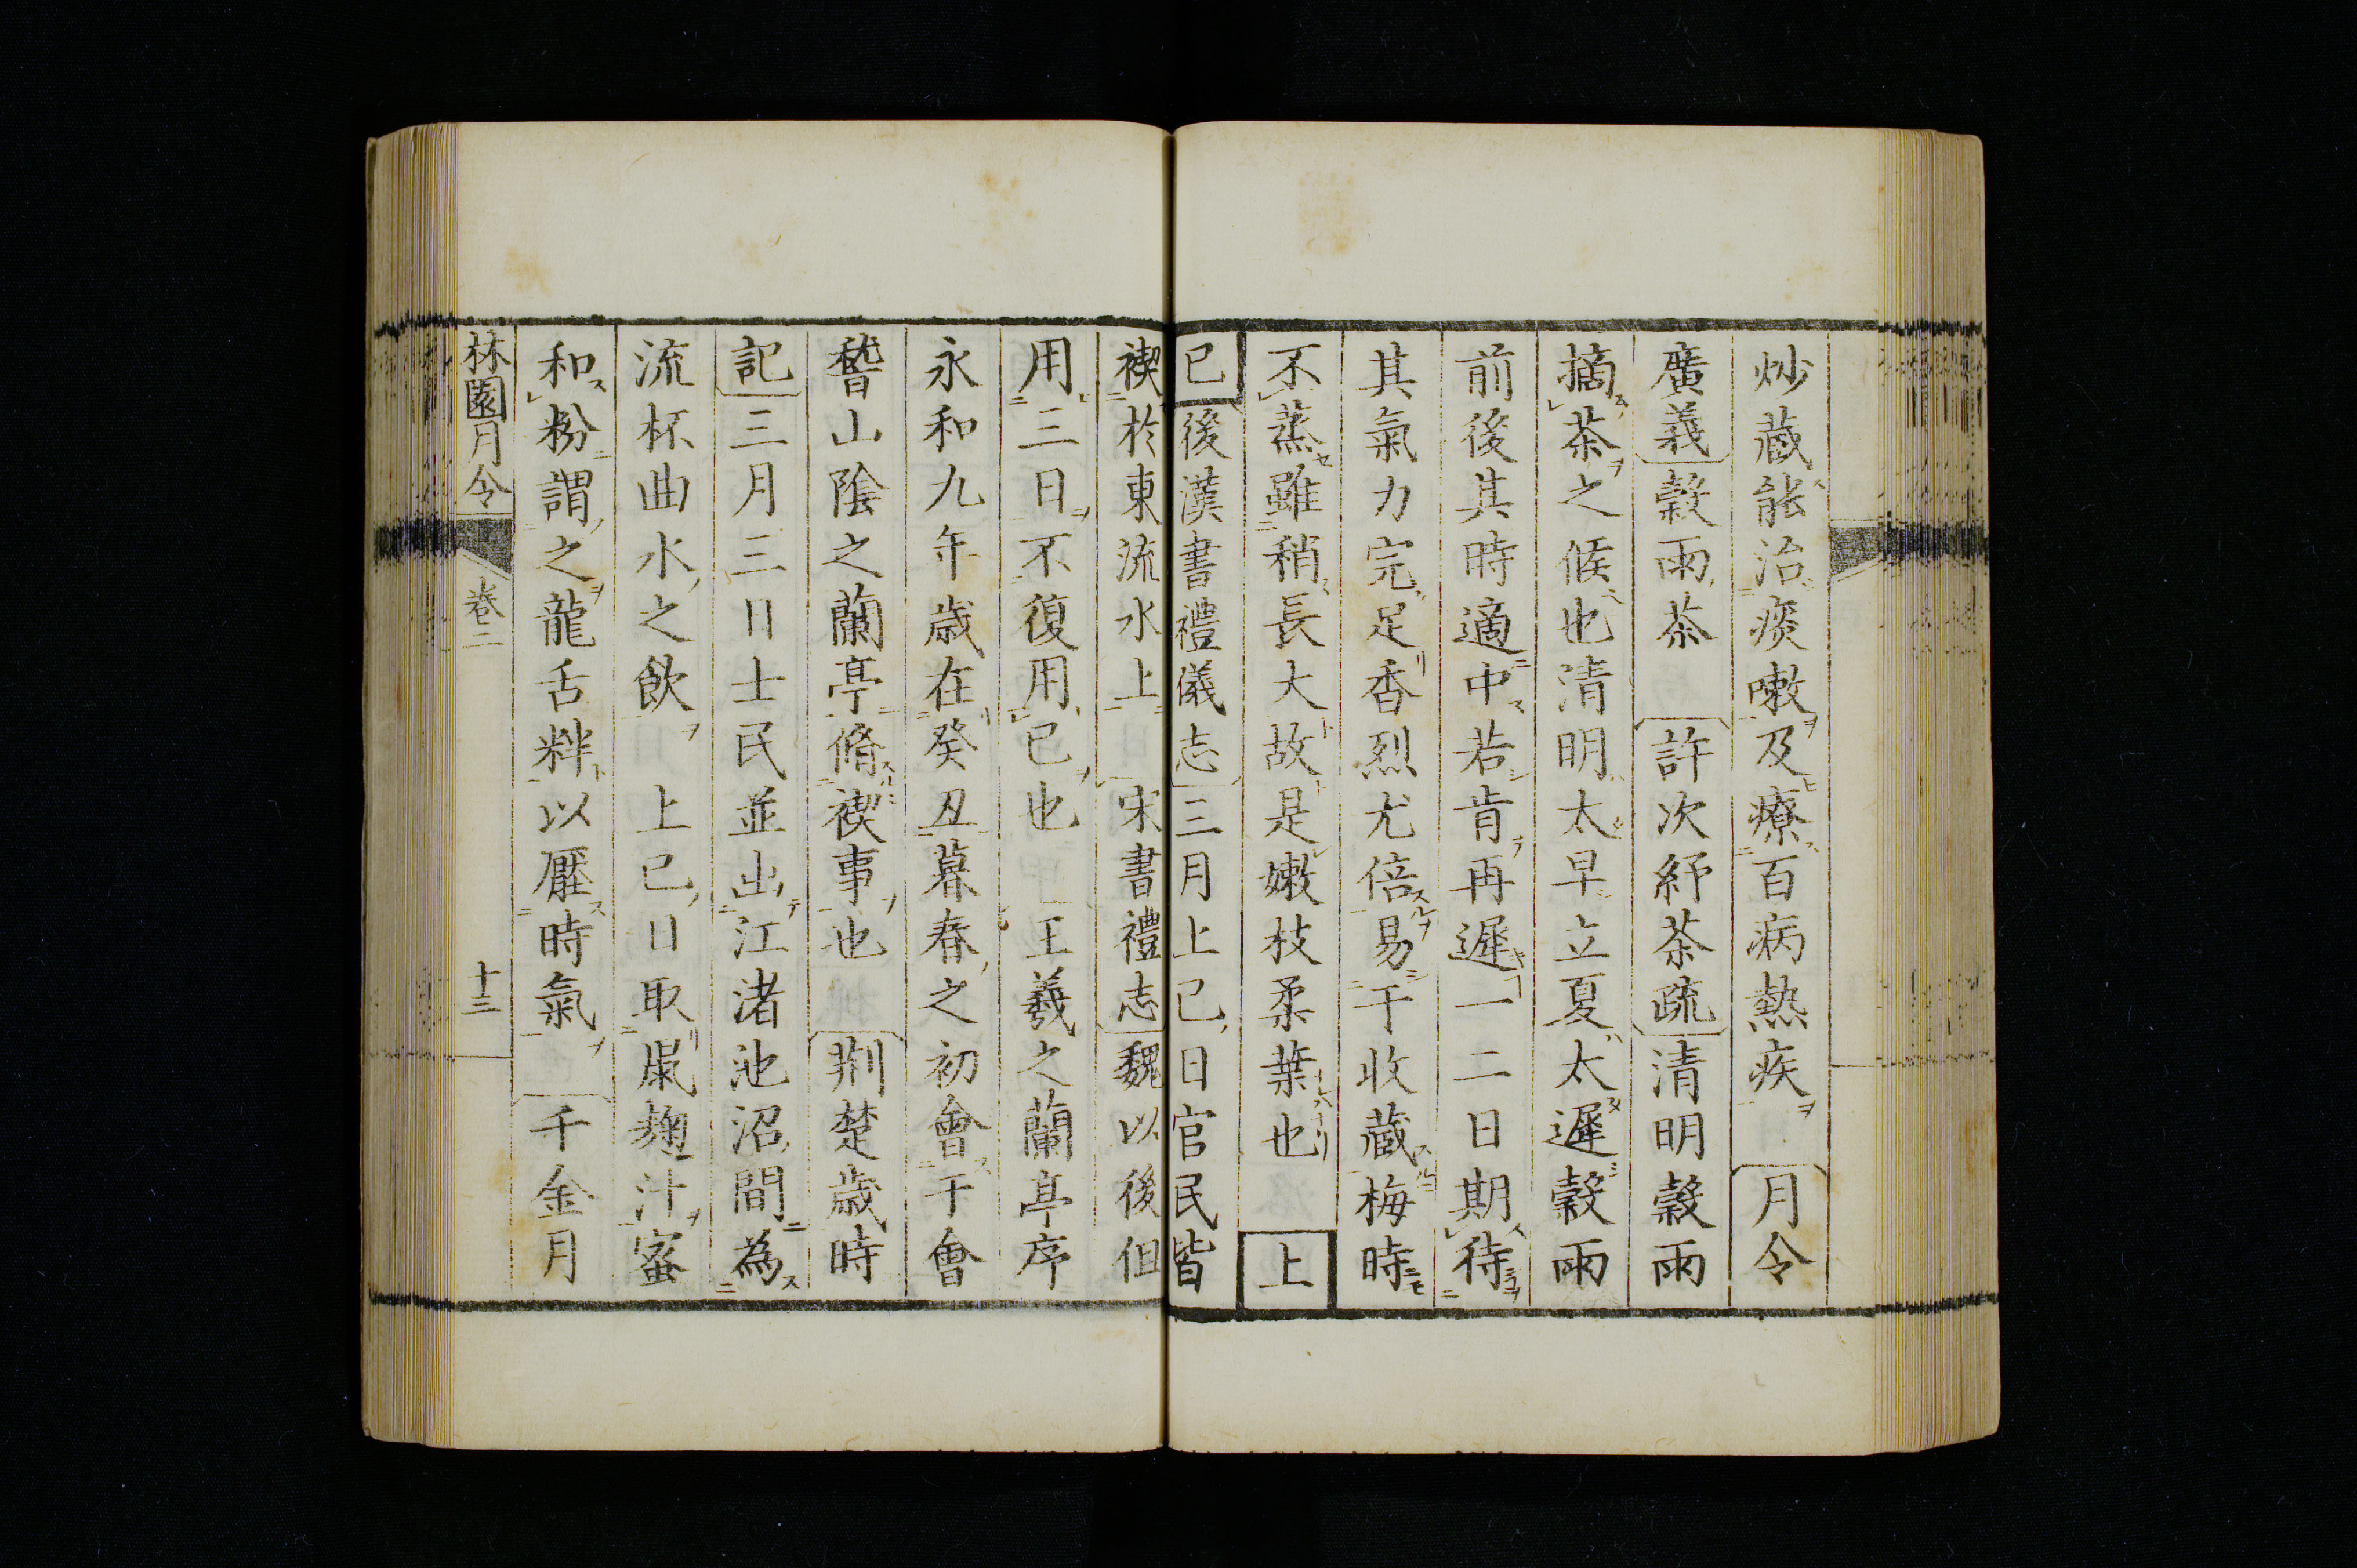 炒蔵能治痰嗽及療百病熱疾　月令
廣義穀雨茶　許次紓茶疏清明穀雨
摘茶之候也清明太早立夏太遲穀雨
前後其時適中若肯再遲一二日期待
其氣力完足香烈尤倍易于收蔵梅時
不蒸雖稍長大故是嫩枝柔葉也　上
巳後漢書禮儀志三月上巳日官民皆
禊於東流水上　宋書禮志魏以後但
用三日不復用巳也　王羲之蘭亭序
永和九年歳在癸丑暮春之初會于會
稽山陰之蘭亭脩禊事也　荆楚歳時
記三月三日士民並出江渚池沼間為
流杯曲水之飲　上巳日取鼠麹汁蜜
和粉謂之龍舌䉽以厭時氣　千金月
林園月令　卷二　十三